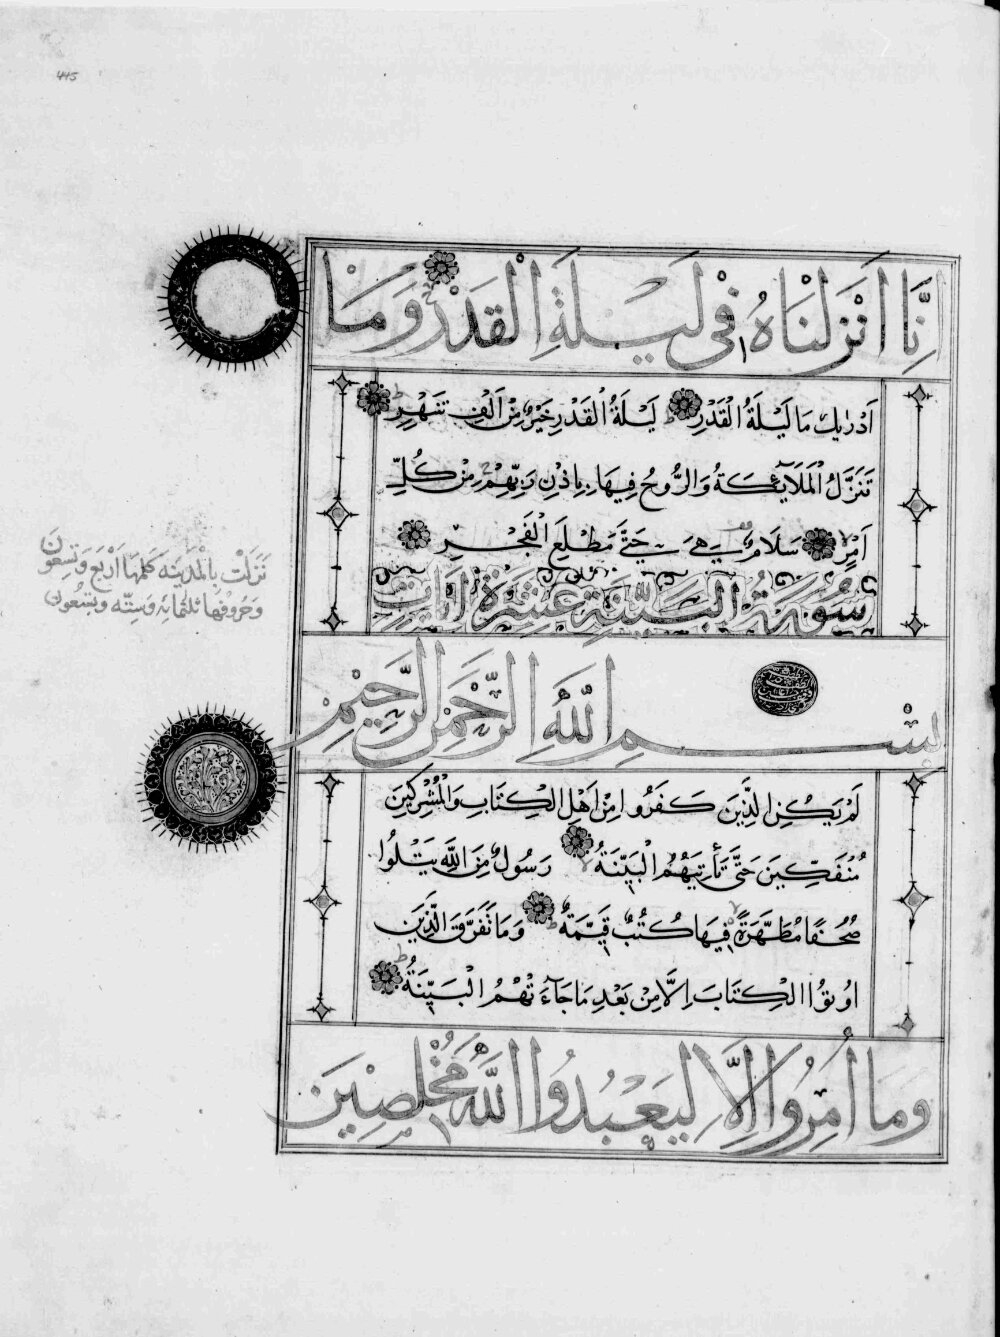 445
اِنَّا اَنْزَلْنَاهُ فِي لَيْلَةِ الْقَدْرِ وَمَا
اَدْرٰيكَ مَا لَيْلَةُ الْقَدْرِ لَيْلَةُ الْقَدْرِ خَيْرٌ مِنْ اَلْفِ شَهْرٍ
تَنَزَّلُ الْمَلَآئِكَةُ وَالرُّوحُ فِيهَا بِاِذْنِ رَبِّهِمْ مِنْ كُلِّ
اَمْرٍ سَلَامٌ هِيَ حَتَّى مَطْلَعِ الْفَجْرِ
سُورَةُ الْبَيِّنَةِ عَشَرَةُ اٰيَاتٍ
نَزَلَتْ بِالْمَدِينَه كَلِمُهَا اَرْبَع وَتِسْعُونَ
وَحُرُوفُهَا ثلثمائه وَستّه وتسعُون
بِسْمِ اللّٰهِ الرَّحْمٰنِ الرَّحِيْمِ
لَمْ يَكُنِ الَّذِينَ كَفَرُوا مِنْ اَهْلِ الْكِتَابِ وَالْمُشْرِكِينَ
مُنْفَكِّينَ حَتَّى تَأْتِيَهُمُ الْبَيِّنَةُ رَسُولٌ مِنَ اللّٰهِ يَتْلُوا
صُحُفًا مُطَهَّرَةً فِيهَا كُتُبٌ قَيِّمَةٌ وَمَا تَفَرَّقَ الَّذِينَ
اُوتُوا الْكِتَابَ اِلَّا مِنْ بَعْدِ مَا جَآءَتْهُمُ الْبَيِّنَةُ
وَمَا اُمِرُوا اِلَّا لِيَعْبُدُوا اللّٰهَ مُخْلِصِيْنَ